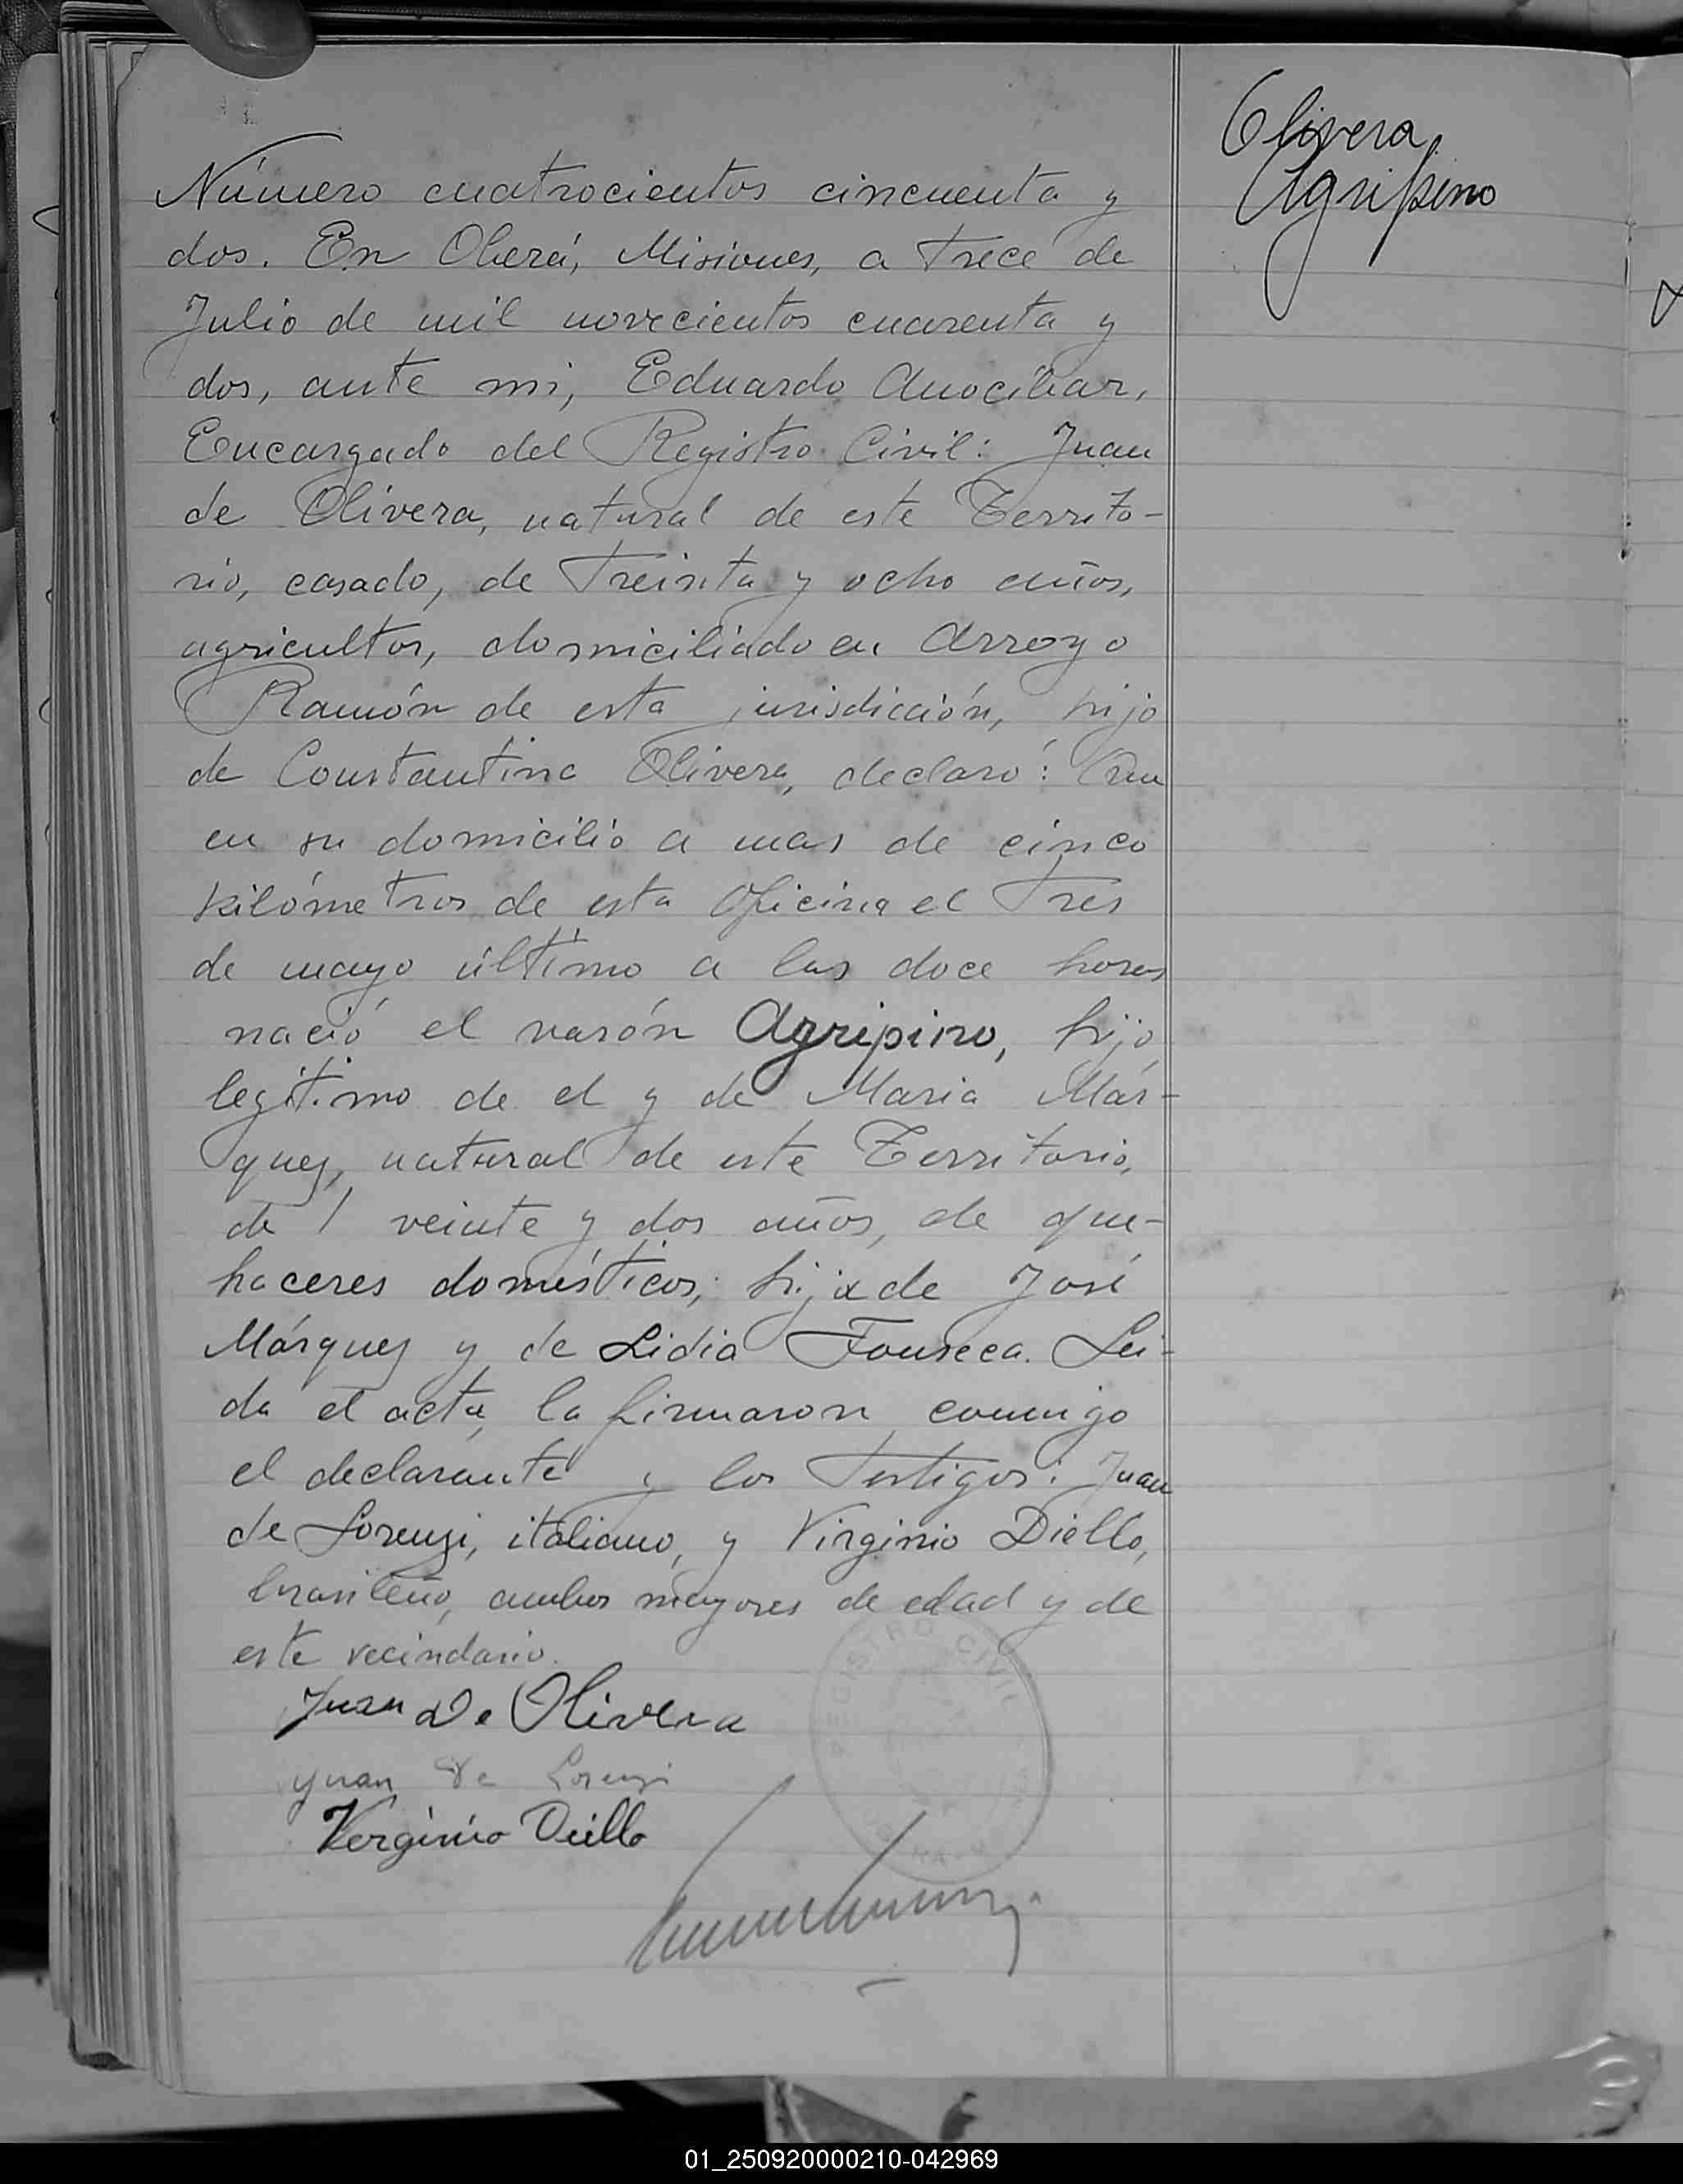 Olivera
Agripino
Número cuatrocientos cincuenta y
dos. En Oberá, Misiones, a trece de
Julio de mil novecientos cuarenta y
dos, ante mi, Eduardo Anocibar,
Encargado del Registro Civil: Juan
de Olivera, natural de este Territo-
rio, casado, de treinta y ocho años,
agricultor, domiciliado en Arroyo
Ramón de esta jurisdicción, hijo
de Constantina Olivera, declaró: Que
en su domicilio a mas de cinco
kilómetros de esta Oficina el tres
de mayo último a las doce horas
nació el varón Agripino, hijo
legítimo de el y de Maria Már-
quez, natural de este Territorio,
de veinte y dos años, de que-
haceres domésticos, hija de José
Márquez y de Lidia Fonseca. Lei-
da el acta, la firmaron conmigo
el declarante y los testigos: Juan
de Lorenzi, italiano, y Virginio Diello,
brasileño, ambos mayores de edad y de
este vecindario.
Juan De Olivera
Juan De Lorenzi
Verginio Diello
REGISTRO CIVIL
01_250920000210-042969